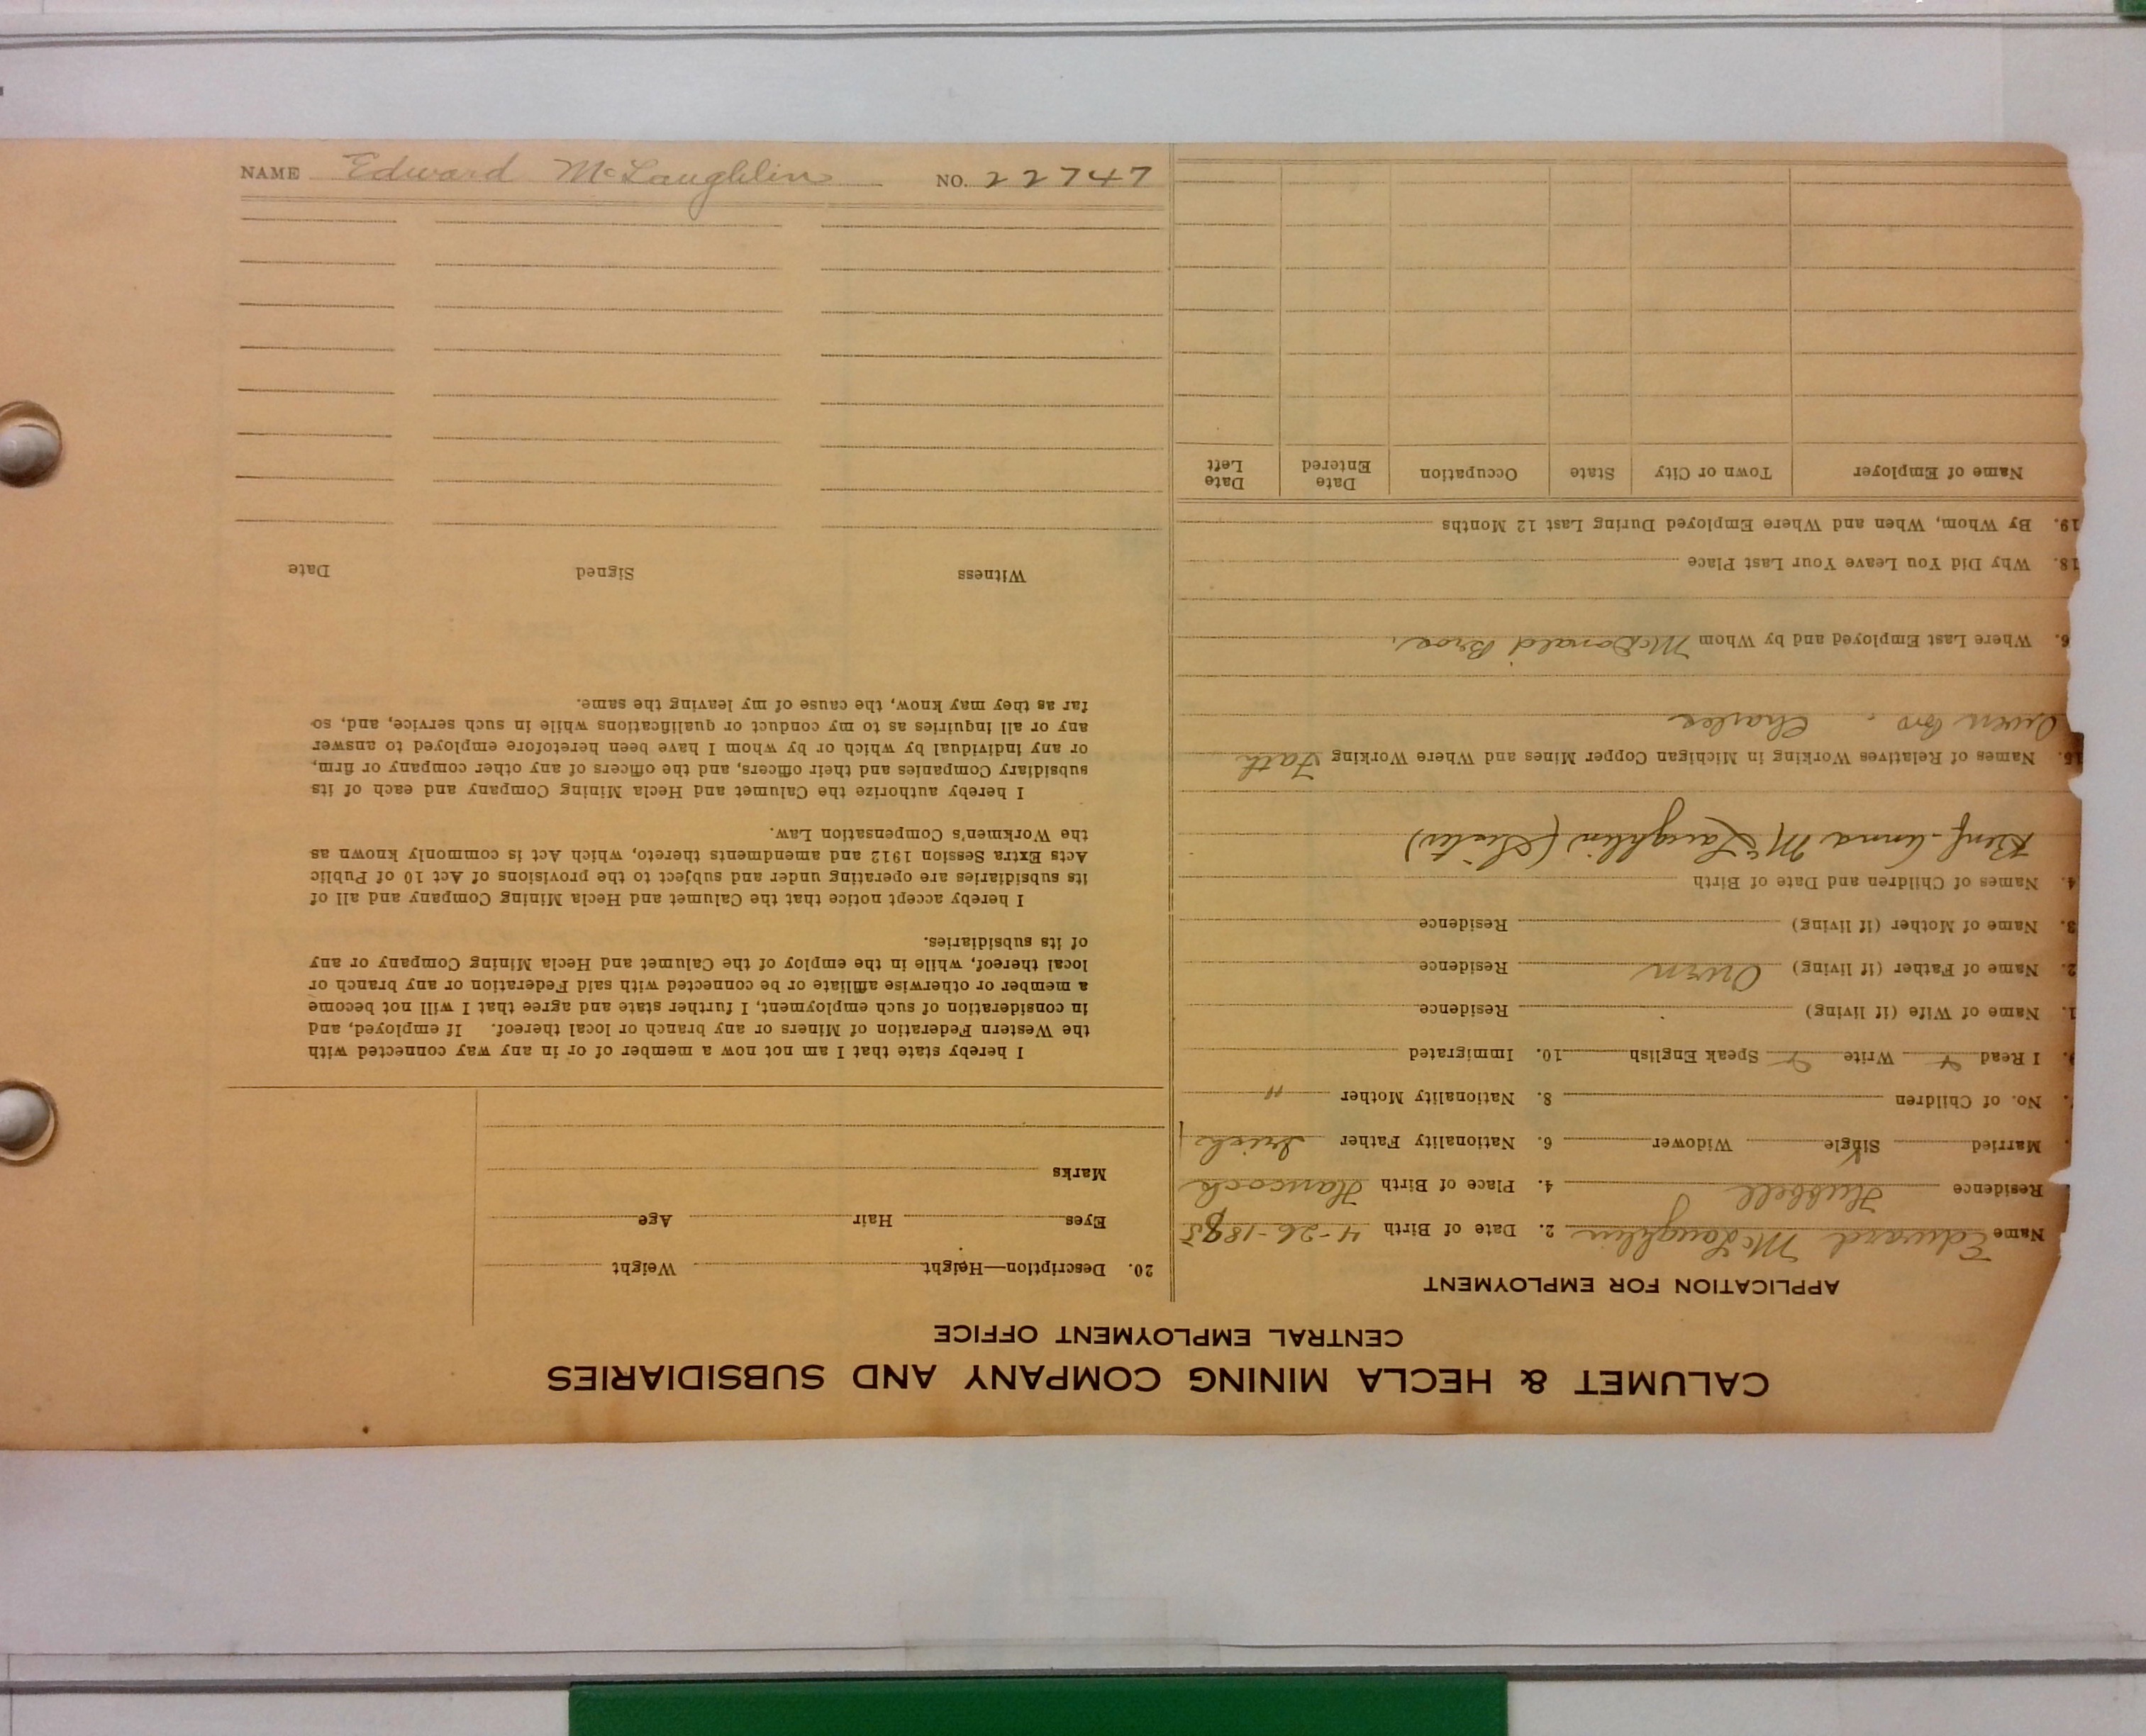 NAME Edward McLaughlin NO. 22747
CALUMET & HECLA MINING COMPANY AND SUBSIDIARIES
CENTRAL EMPLOYMENT OFFICE
APPLICATION FOR EMPLOYMENT
Name Edward McLaughlin 2. Date of Birth 4-26-1885
Residence Hubbell 4. Place of Birth Hancock
Married Single Widower 6. Nationality Father Irish
No. of Children 8. Nationality Mother "
9. I Read Write Speak English 10. Immigrated
1. Name of Wife (if living) Residence
2. Name of Father (if living) Owen Residence
3. Name of Mother (if living) Residence
4. Names of Children and Date of Birth
Benf- Anna McLaughlin (Sister)
15. Names of Relatives Working in Michigan Copper Mines and Where Working Fath
Owen Bro. Charles
6. Where Last Employed and by Whom McDonald Bros.
18. Why Did You Leave Your Last Place
19. By Whom, When and Where Employed During Last 12 Months
Name of Employer Town or City State Occupation Date Entered Date Left
20. Description—Height Weight
Eyes Hair Age
Marks
I hereby state that I am not now a member of or in any way connected with
the Western Federation of Miners or any branch or local thereof. If employed, and
in consideration of such employment, I further state and agree that I will not become
a member or otherwise affiliate or be connected with said Federation or any branch or
local thereof, while in the employ of the Calumet and Hecla Mining Company or any
of its subsidiaries.
I hereby accept notice that the Calumet and Hecla Mining Company and all of
its subsidiaries are operating under and subject to the provisions of Act 10 of Public
Acts Extra Session 1912 and amendments thereto, which Act is commonly known as
the Workmen's Compensation Law.
I hereby authorize the Calumet and Hecla Mining Company and each of its
subsidiary Companies and their officers, and the officers of any other company or firm,
or any individual by which or by whom I have been heretofore employed to answer
any or all inquiries as to my conduct or qualifications while in such service, and, so
far as they may know, the cause of my leaving the same.
Witness Signed Date